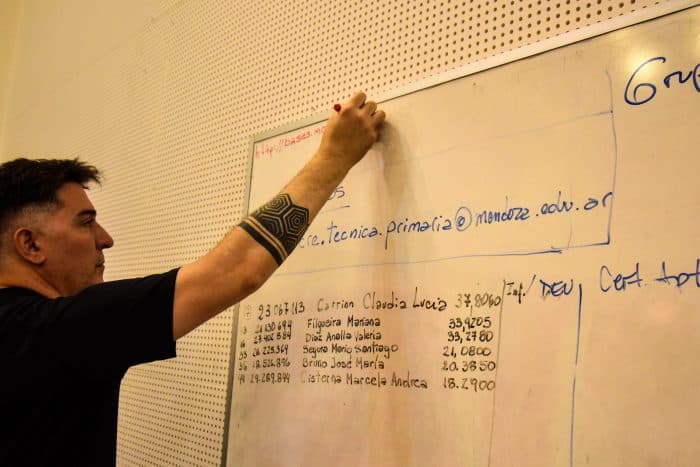 http://bases.m
Gru
os
cre.tecnica.primaria@mendoza.edu.ar
Inf./ DEU Cert. Apt
23 067 113 Carrion Claudia Lucia 37,8060
21.130.694 Filgueira Mariana 33,9205
27.402.584 Díaz Analia Valeria 33,2780
33 26.225.364 Segura Mario Santiago 21,0800
36 18.526.896 Bruno José María 20.3850
44 29.289.844 Cisterna Marcela Andrea 18.2900